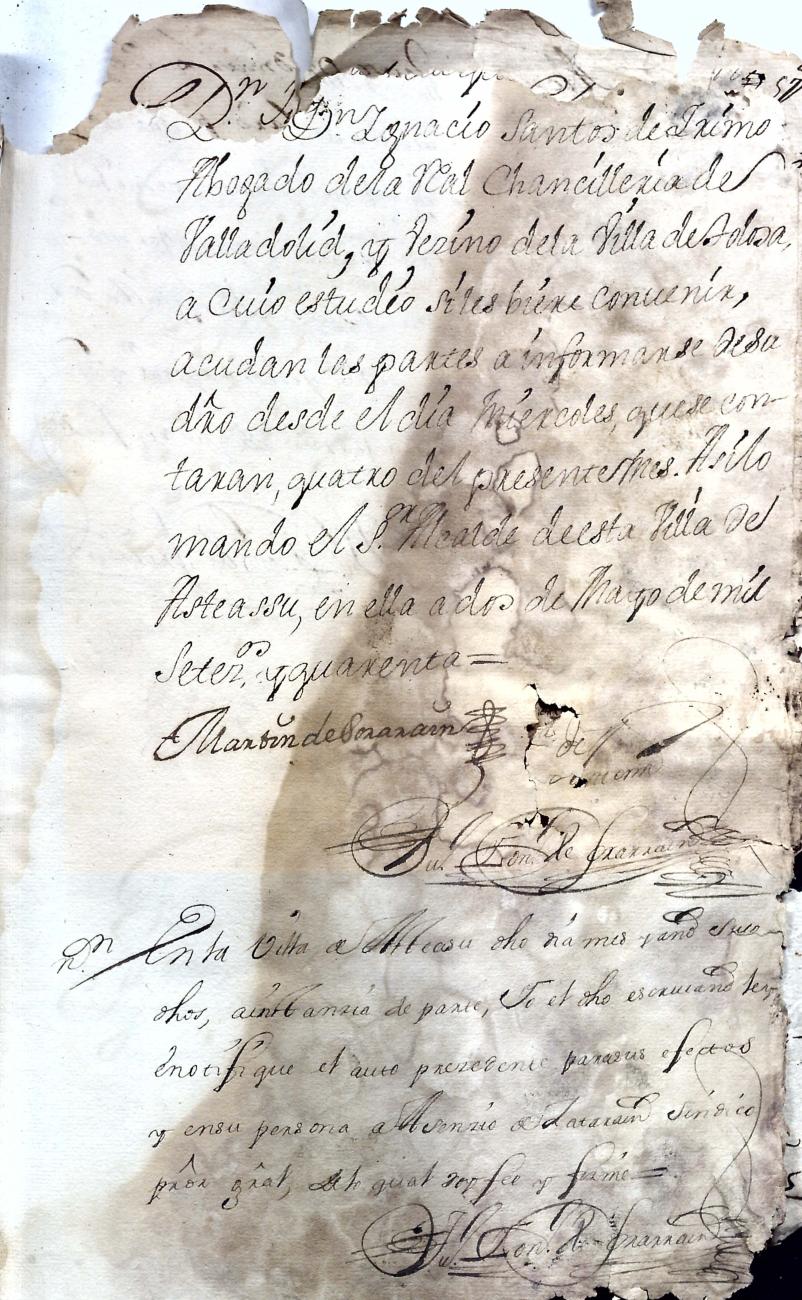 57
Dn Ignacio Santos de Trimo
Abogado dela Rl Chancilleria de
Valladolid, y Vezino dela Villa de Tolosa,
a Cuio estudio si les biere convenir,
acudan las partes a informarse de su
dño desde el dia Miercoles, quese con-
taran, quatro del presente Mes. Asilo
mando el S.r Alcalde de esta Villa de
Asteassu, en ella a dos de Mayo de mil
Setezs. y quarenta =
Martin de Sorarain
de
En la Villa de Asteasu dho dia mes y año suso
dhos, a instanzia de parte, Yo el dho escriuano ley
e notifique el auto prezedente para sus efectos
y en su persona a Asenzio de Latarain sindico
prõr grãl, de lo qual doy fee y firme =